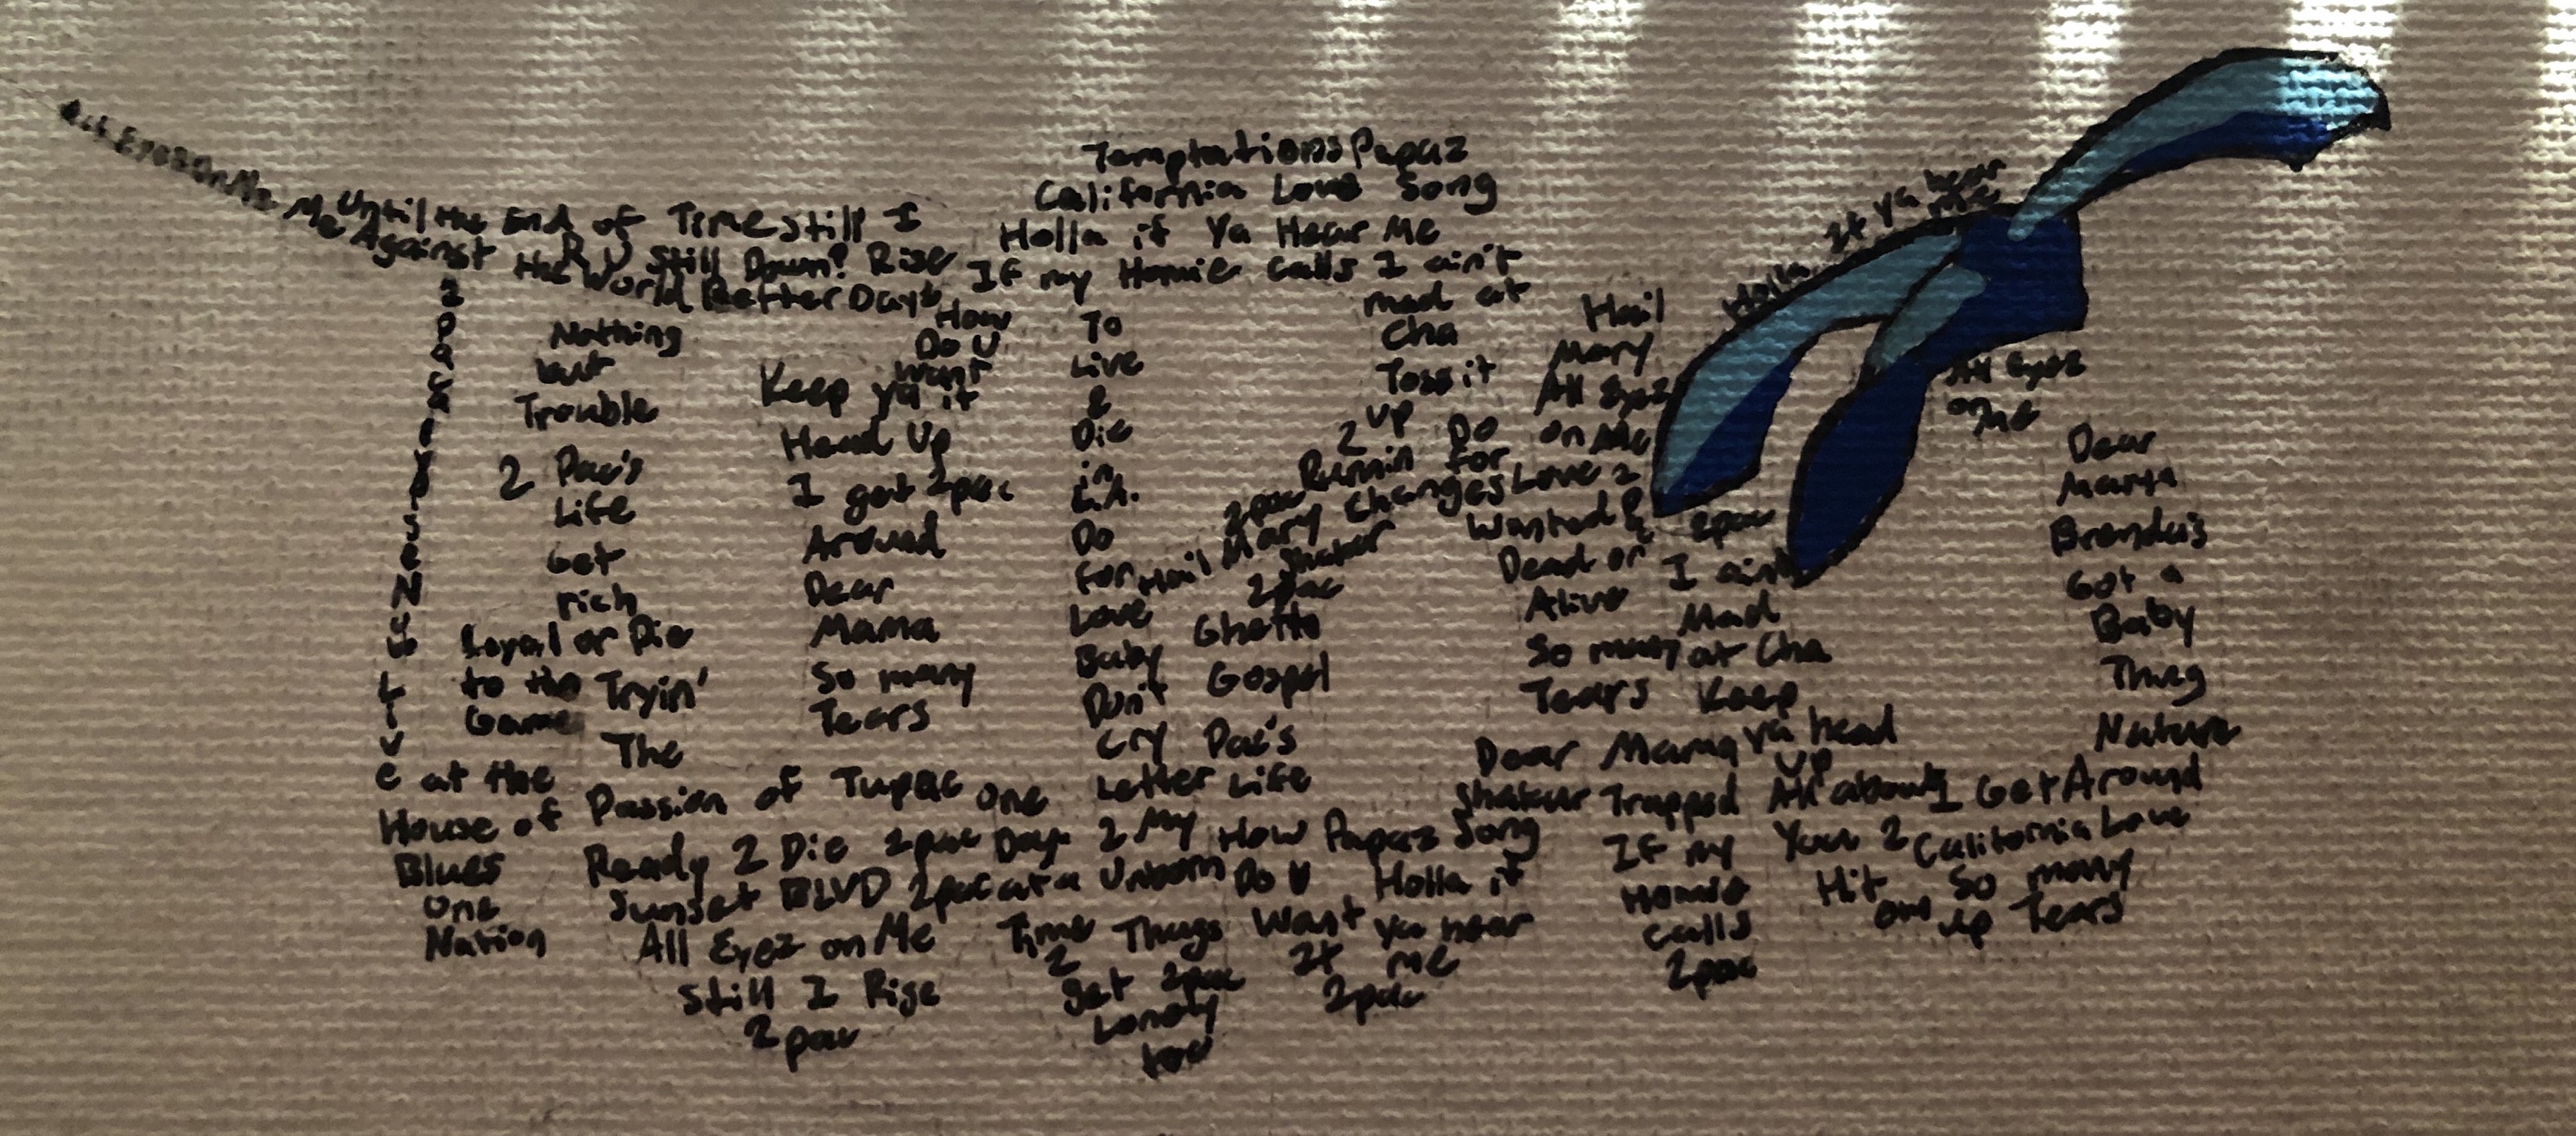 All Eyez On Me
Me Against the World Better Dayz
Until the End of Time Still I
R U Still Down? Rise
2Pacalypse Now
Live at the
House of
Blues
One
Nation
Nothing
but
Trouble
2 Pac's
Life
Get
rich
or Die
Tryin'
Loyal
to the
Game
The
Passion of Tupac
Ready 2 Die 2pac
Sunset BLVD 2pac
All Eyez on Me
Still I Rise
2pac
Keep ya
Head Up
I get 2pac
Around
Dear
Mama
So many
Tears
How
Do U
Want
it
One
Day
at a
Time
Temptations Papaz
California Love Song
Holla if Ya Hear Me
If my Homie Calls I ain't
mad at
Cha
Toss it
up
2
To
Live
&
Die
in
L.A.
Do
For
Love
Baby
Don't
Cry
Letter
2 My
Unborn
Thugs
2
get 2pac
Lonely
too
Runnin
2pac
Hail Mary Changes
Shakur
2pac
Ghetto
Gospel
Pac's
Life
How
Do U
Want
It
Papaz Song
Holla if
ya hear
me
2pac
Hail
Mary
All Eyez
on Me
Do
For
Love 2
Wanted
Dead or
Alive
So many
Tears
Dear Mama
Shakur Trapped
If my
Homie
Calls
2pac
2pac
I ain't
Mad
at Cha
Keep
ya head
up
All about
You 2
Hit
em up
Holla If Ya hear
me
All Eyez
on
Me
Dear
Mama
Brenda's
Got a
Baby
Thug
Nature
I Get Around
California Love
So many
Tears